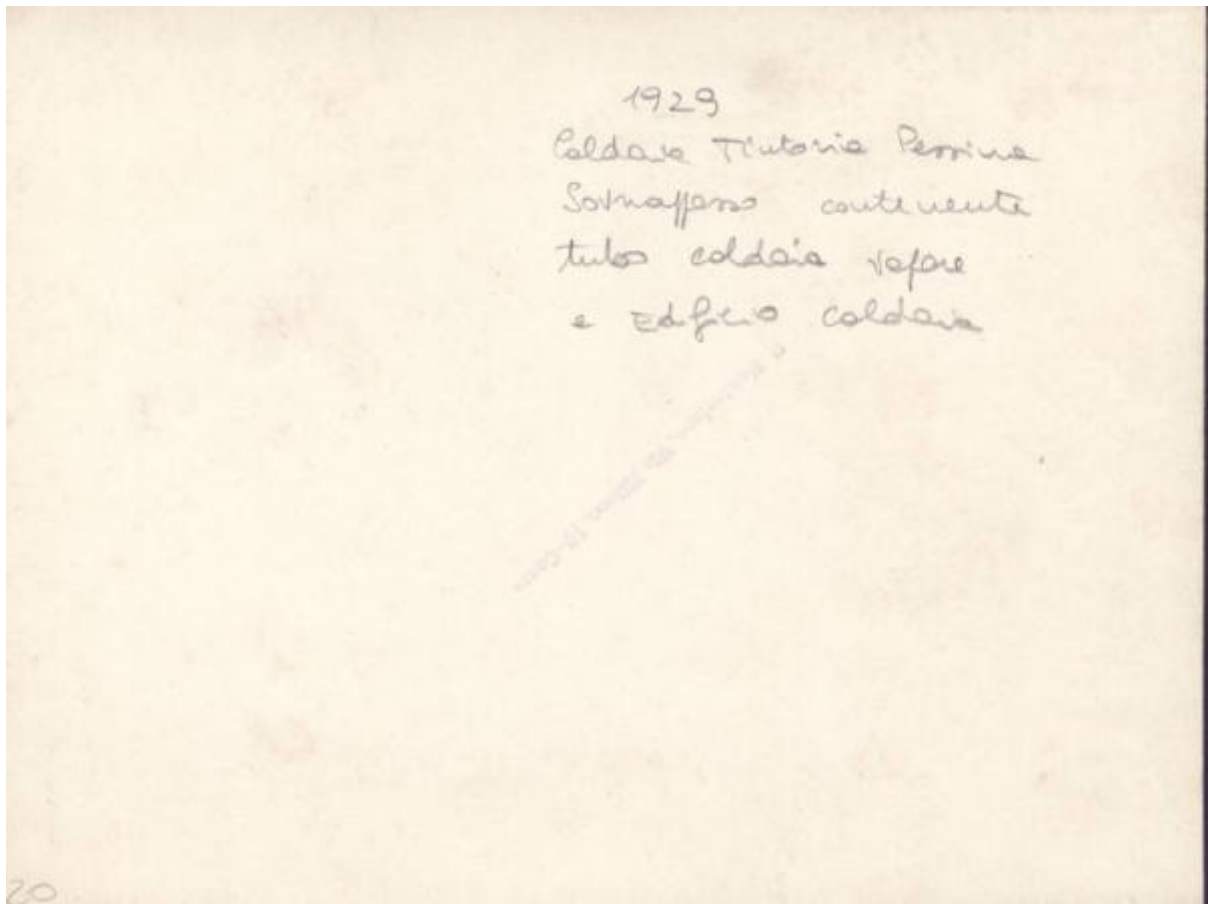 1929
Caldaia Tintoria Pessina
Sovrappasso contenente
tubo caldaia vapore
e Edificio caldaia
20